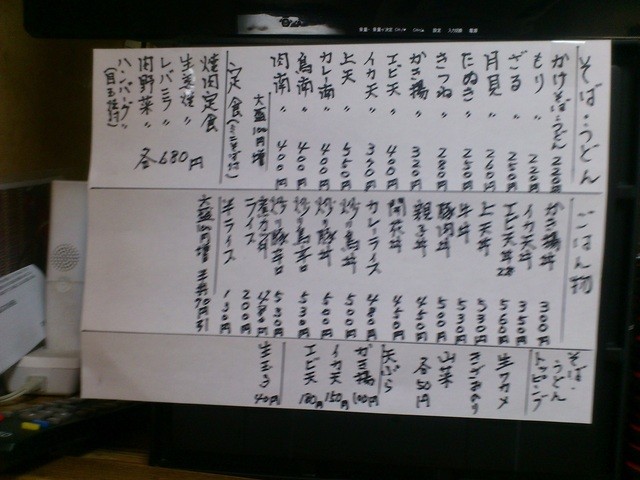 そば・うどん
かけそば・うどん 220円
もり 〃 220円
ざる 〃 250円
月見 〃 260円
たぬき 〃 250円
きつね 〃 280円
かき揚 〃 320円
エビ天 〃 400円
イカ天 〃 370円
上天 〃 550円
カレー南 〃 400円
鳥南 〃 400円
肉南 〃 400円
大盛100円増
定食(ミニそば付)
焼肉定食
生姜焼 〃
レバニラ 〃
肉野菜 〃 各680円
ハンバーグ 〃
(目玉焼付)
ごはん物
かき揚丼 300円
イカ天丼 350円
エビ天丼2本 560円
上天丼 530円
牛丼 530円
豚肉丼 500円
親子丼 450円
開花丼 450円
カレーライス 480円
鳥丼 500円
豚丼 500円
鳥辛口 530円
豚辛口 530円
480円
ライス 200円
半ライス 130円
大盛100円増 半丼70円引
そば・うどん
トッピング
生ワカメ
山菜
各50円
天ぷら
かき揚 100円
イカ天 150円
エビ天 180円
生玉子 40円